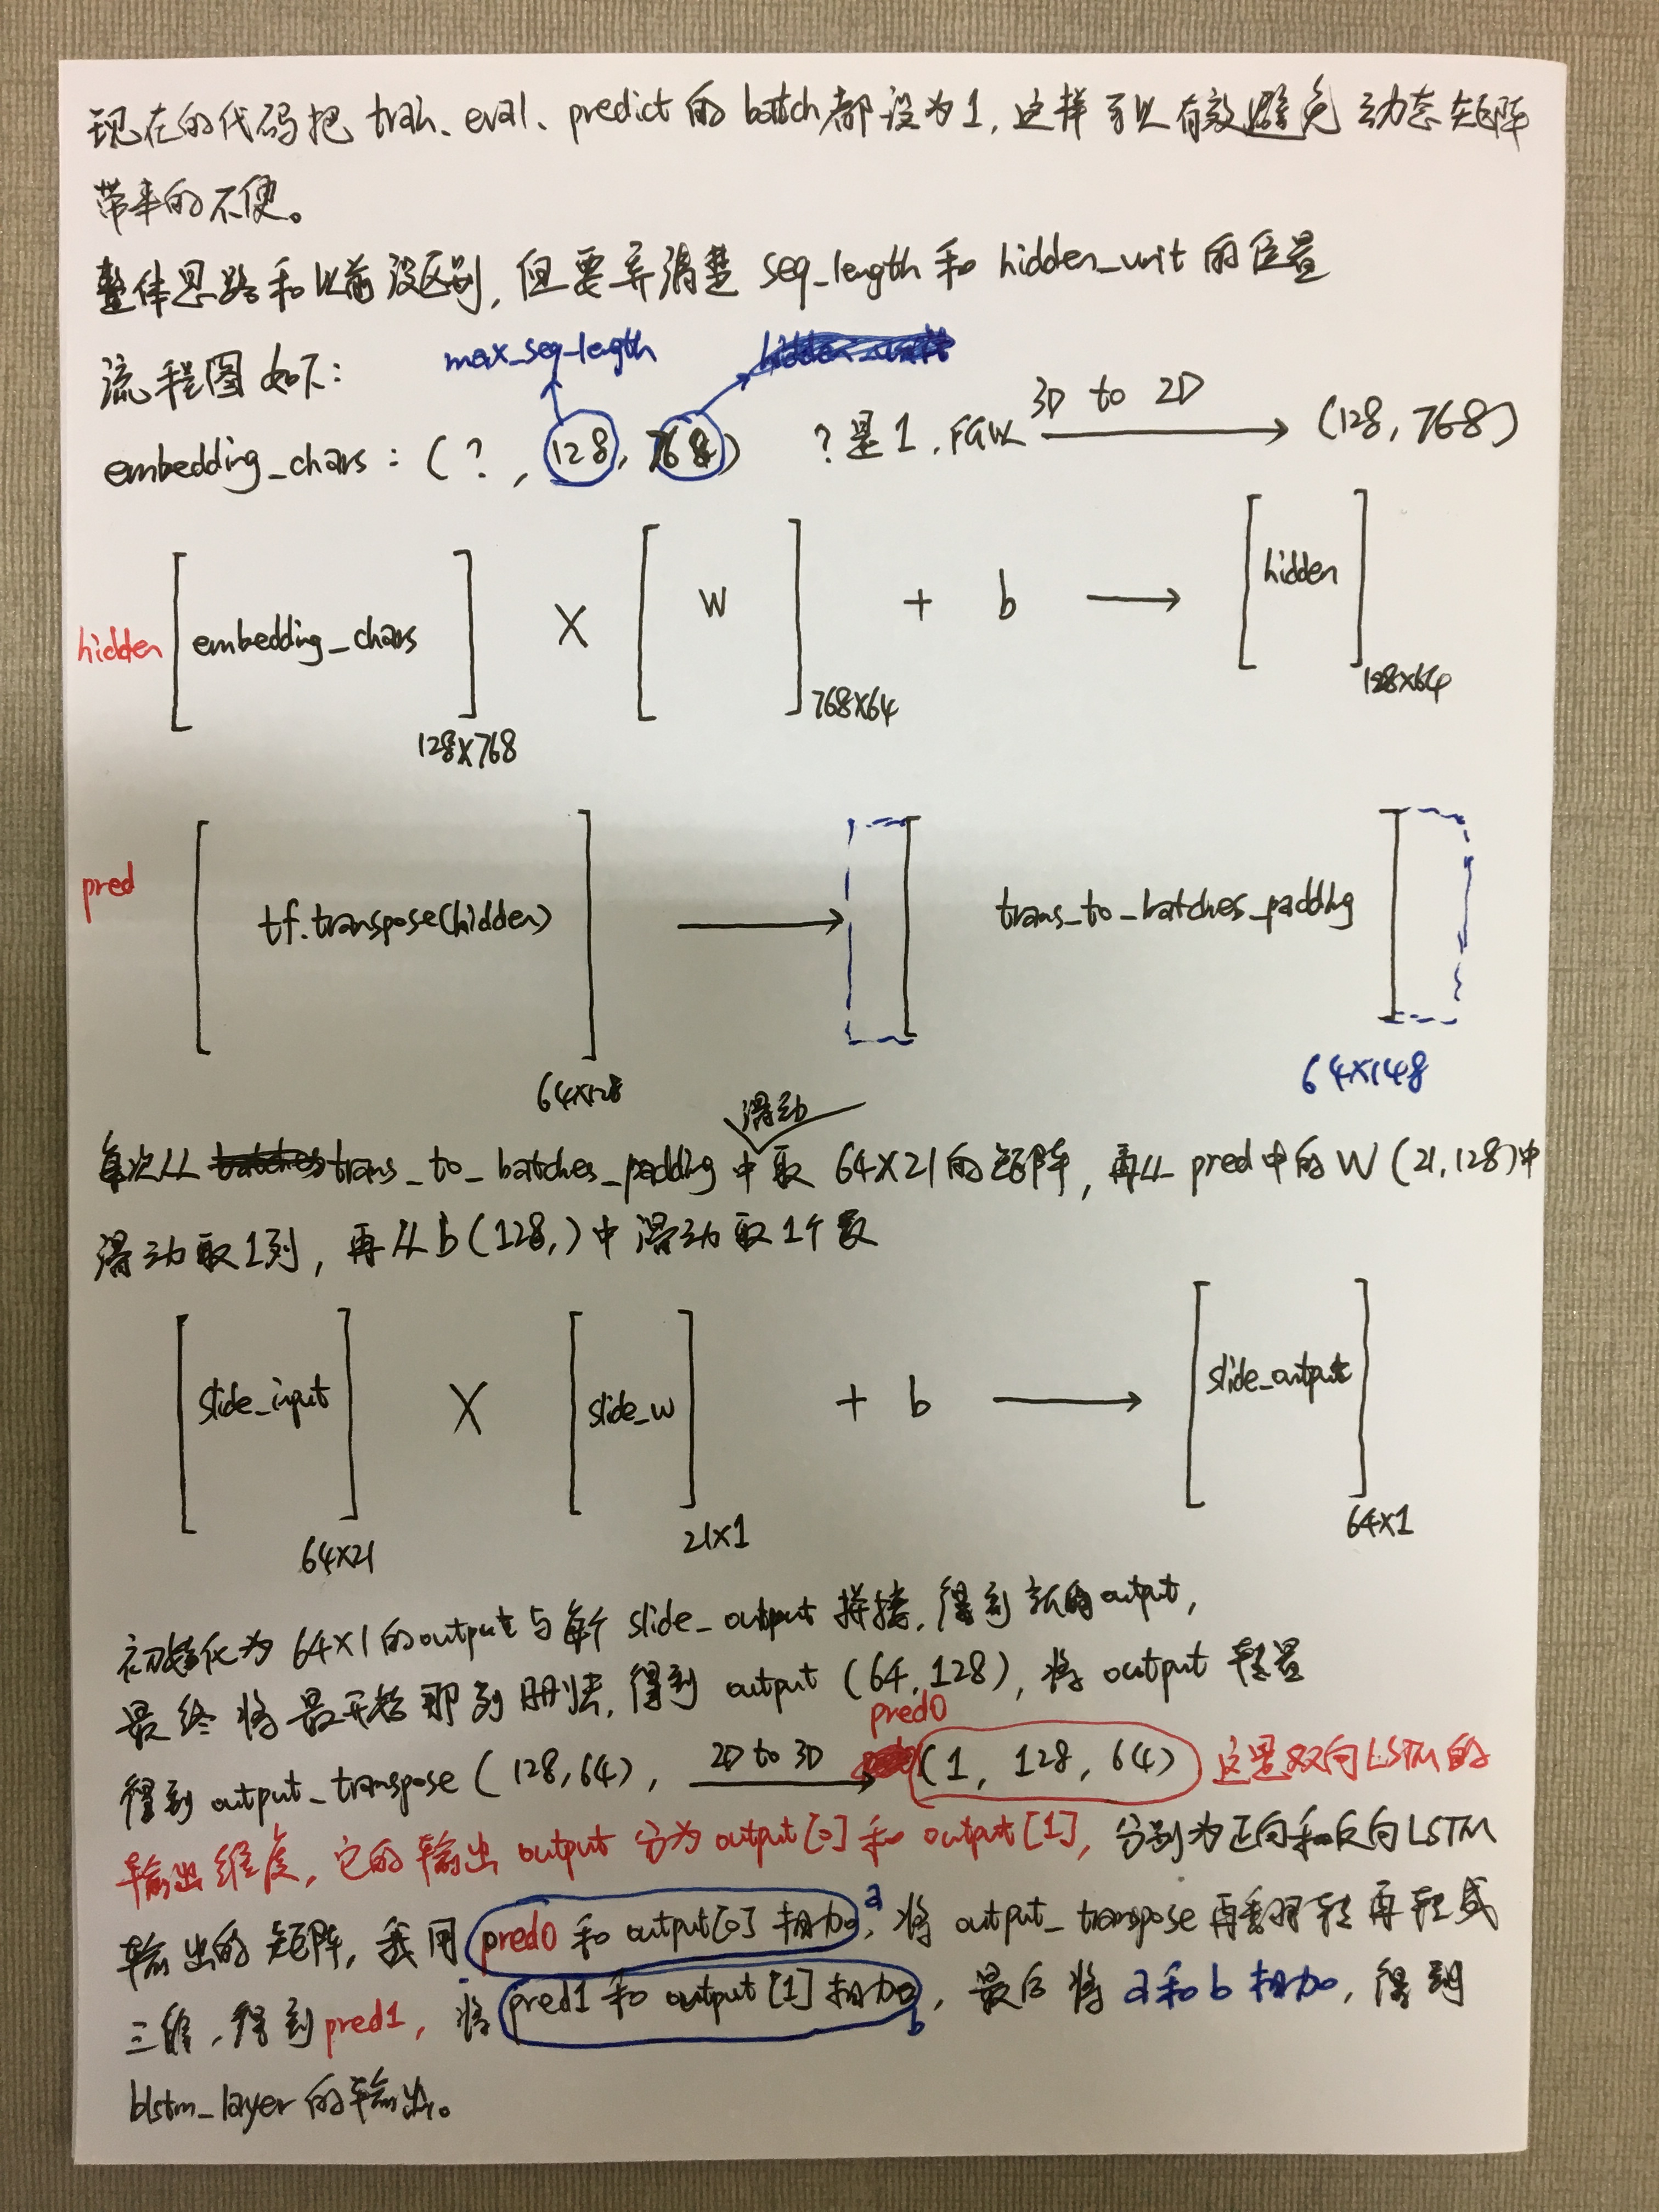 现在的代码把 train、eval、predict 的 batch 都设为1，这样可以有效避免动态矩阵
带来的不便。
整体思路和以前没区别，但要弄清楚 seq_length 和 hidden_unit 的位置
max_seq_length
流程图如下：
3D to 2D
embedding_chars : ( ? , 128, 768) ?是1, (128, 768)
hidden [ embedding_chars ] 128×768 × [ W ] 768×64 + b → [ hidden ] 128×64
pred [ tf.transpose(hidden) ] 64×128 → [ trans_to_batches_padding ] 64×148
滑动
每次从 trans_to_batches_padding 中取 64×21的矩阵，再从 pred 中的 W (21,128)中
滑动取1列，再从 b (128,) 中滑动取1个数
[ slide_input ] 64×21 × [ slide_w ] 21×1 + b → [ slide_output ] 64×1
初始化为 64×1 的output与每个 slide_output 拼接，得到新的output，
最终将最开始那列删去，得到 output (64,128)，将 output 转置
pred0
得到 output_transpose (128,64)， 2D to 3D → (1, 128, 64) 这是双向LSTM的
输出维度，它的输出 output 分为 output[0] 和 output[1]，分别为正向和反向LSTM
输出的矩阵，我用 pred0 和 output[0] 相加 a，将 output_transpose 再翻转再转成
三维，得到 pred1，将 pred1 和 output[1] 相加 b，最后将 a 和 b 相加，得到
blstm_layer 的输出。